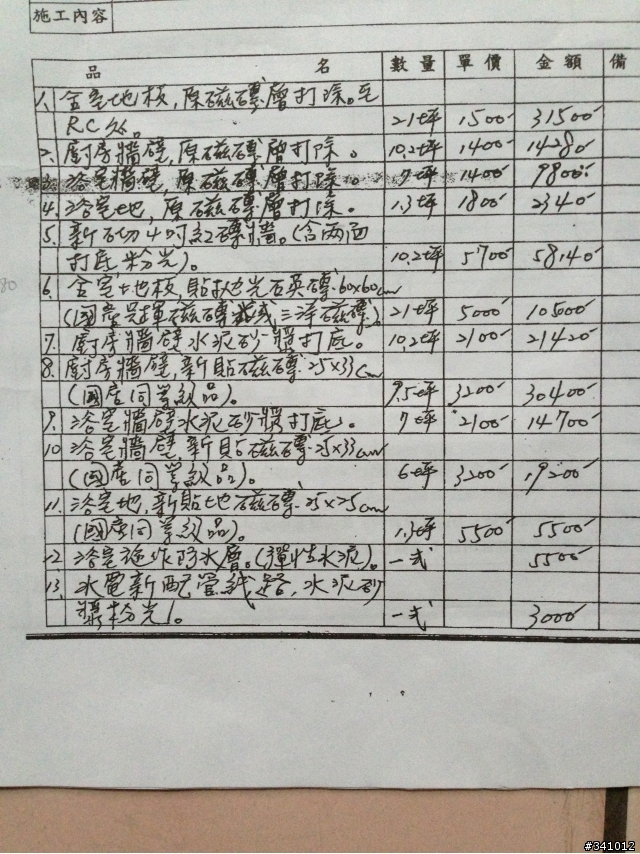 施工內容
品 名 數量 單價 金額 備
1. 全室地板,原磁磚層打除。至
RC 為。 21坪 1500 31500
2. 廚房牆壁,原磁磚層打除。 10.2坪 1400 14280
3. 浴室牆壁,原磁磚層打除。 7坪 1400 9800
4. 浴室地,原磁磚層打除。 1.3坪 1800 2340
5. 新石切4吋紅磚牆。(含兩面
打底粉光)。 10.2坪 5700 58140
6. 全室地板,貼拋光石英磚60x60cm
(國產冠軍磁磚或三洋磁磚) 21坪 5000 10500
7. 廚房牆壁水泥砂漿打底。 10.2坪 2100 21420
8. 廚房牆壁,新貼磁磚25x33cm
(國產同等級品)。 9.5坪 3200 30400
9. 浴室牆壁水泥砂漿打底。 7坪 2100 14700
10 浴室牆壁,新貼磁磚25x33cm
(國產同等級品)。 6坪 3200 19200
11. 浴室地,新貼地磁磚25x25cm
(國產同等級品)。 1.3坪 5500 5500
12 浴室施作防水層。(彈性水泥)。 一式 5500
13. 水電新配管線路,水泥砂
漿粉光。 一式 3000
#341012